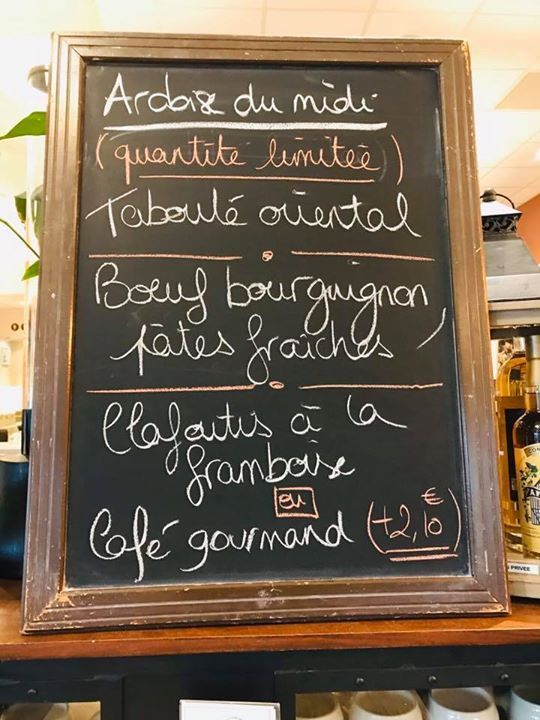 Ardoise du midi
(quantité limitée)
Taboulé oriental
Boeuf bourguignon,
pâtes fraîches
Clafoutis à la
framboise
ou
Café gourmand (+2,10€)
PRIVEE